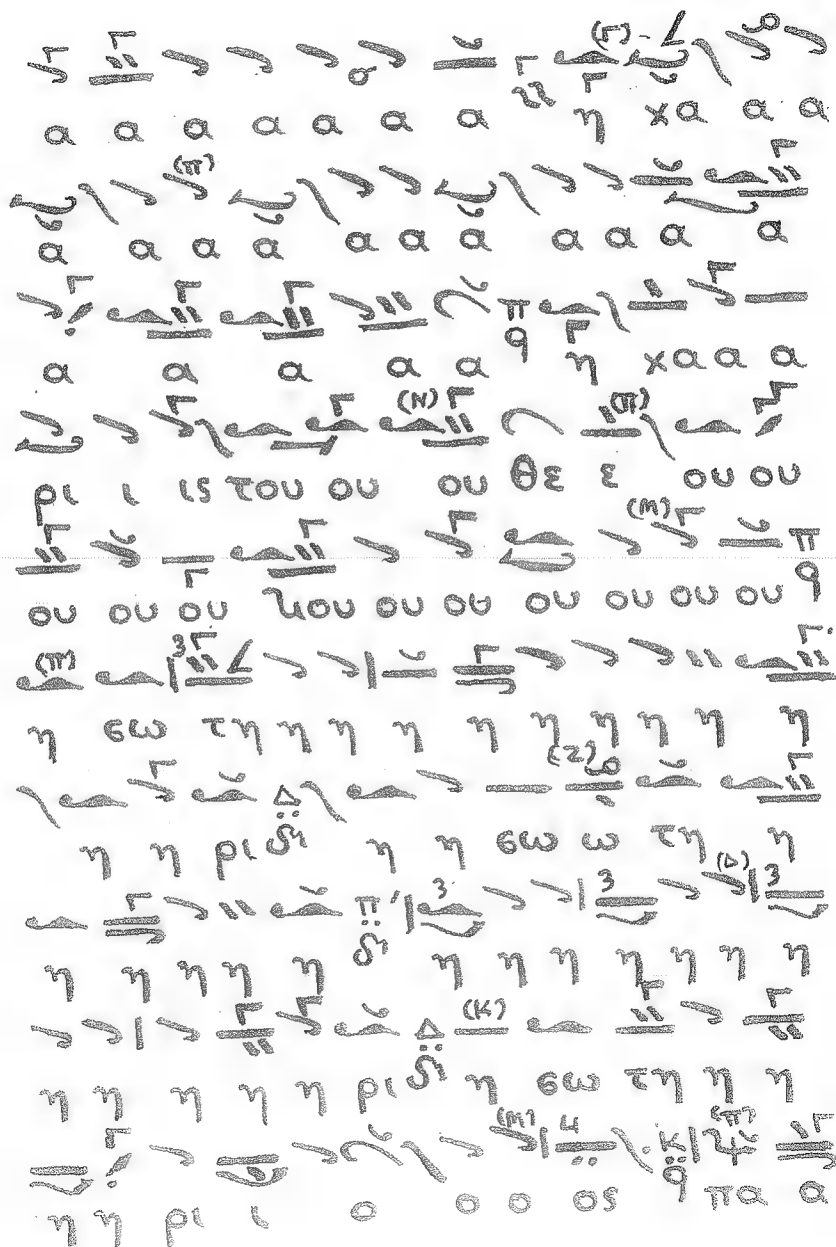 (Γ)
α α α α α α α η χα α α
(π)
α α α α α α α α α α α
π
α α α α α q η χα α α
(Ν) (π)
ρι ι ις του ου ου θε ε ου ου
(Μ) π
ου ου ου κου ου ου ου ου ου ου q
(π)
η σω τη η η η η η η η η η
(Ζ)
Δ
η η ρι η η σω ω τη η
(Δ)
π
η η η η η η η η η η η η
Δ (Κ)
η η η η η ρι η σω τη η η
(Μ) (π)
Κ
η η ρι ι ο ο ο ος q πα α